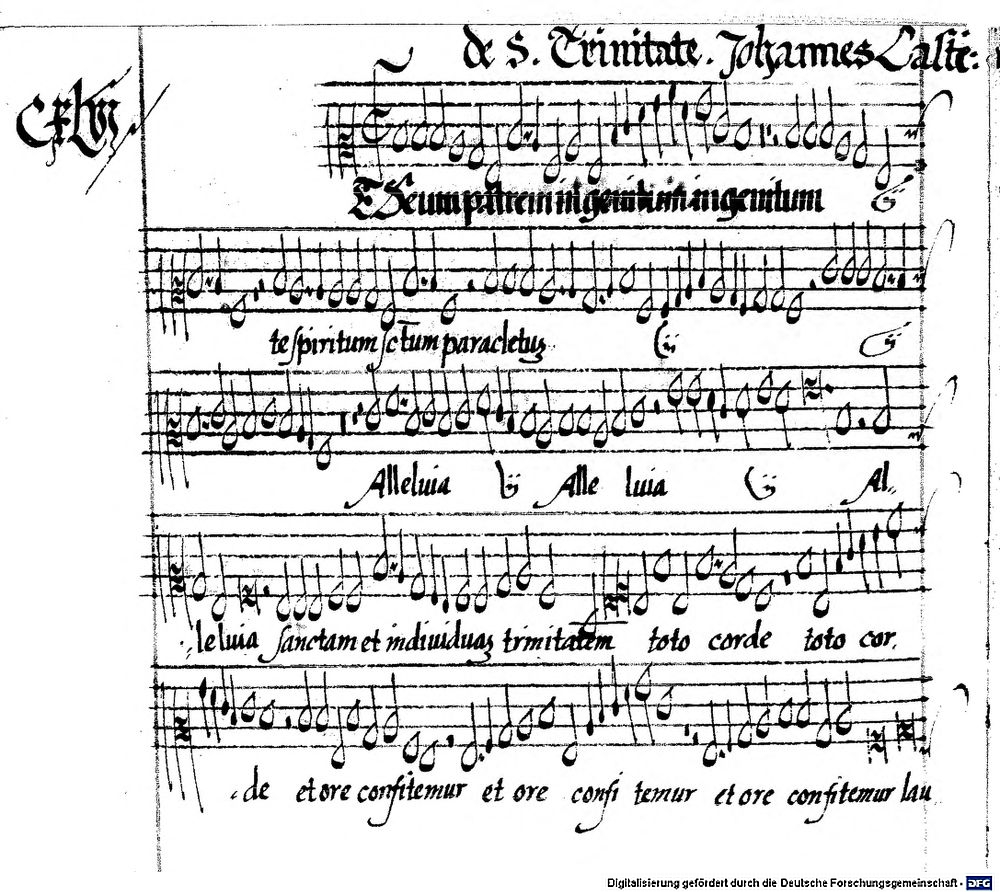 de S. Trinitate. Johannes Casti:
TE Deum patrem ingenitum ingenitum ij
te spiritum sctum paracletuz ij ij
Alleluia ij Alle luia ij Al,,
,,leluia sanctam et indiuiduaz trinitatem toto corde toto cor,
,,de et ore confitemur et ore confi temur et ore confitemur lau
Digitalisierung gefördert durch die Deutsche Forschungsgemeinschaft - DFG